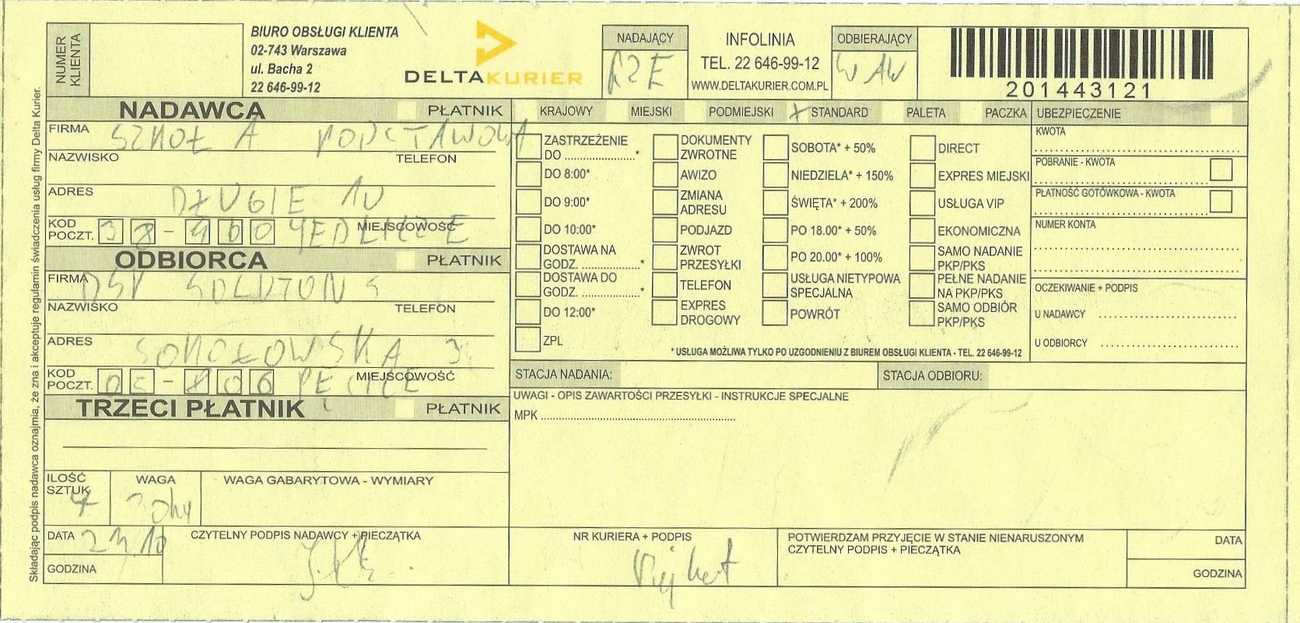 NUMER KLIENTA
BIURO OBSŁUGI KLIENTA
02-743 Warszawa
ul. Bacha 2
22 646-99-12
DELTAKURIER
NADAJĄCY
RZE
INFOLINIA
TEL. 22 646-99-12
WWW.DELTAKURIER.COM.PL
ODBIERAJĄCY
WAW
201443121
Składając podpis nadawca oznajmia, że zna i akceptuje regulamin świadczenia usług firmy Delta Kurier.
NADAWCA PŁATNIK
FIRMA SZKOŁA PODSTAWOWA
NAZWISKO TELEFON
ADRES DŁUGIE
KOD POCZT. 38-460 MIEJSCOWOŚĆ JEDLICZE
ODBIORCA PŁATNIK
FIRMA DSV SOLUTIONS
NAZWISKO TELEFON
ADRES SOKOŁOWSKA
KOD POCZT. 05-806 MIEJSCOWOŚĆ PĘCICE
TRZECI PŁATNIK PŁATNIK
ILOŚĆ SZTUK
WAGA
WAGA GABARYTOWA - WYMIARY
DATA
GODZINA
CZYTELNY PODPIS NADAWCY + PIECZĄTKA
KRAJOWY MIEJSKI PODMIEJSKI x STANDARD PALETA PACZKA
ZASTRZEŻENIE DO ....................*
DO 8:00*
DO 9:00*
DO 10:00*
DOSTAWA NA GODZ. ....................*
DOSTAWA DO GODZ. ....................*
DO 12:00*
ZPL
DOKUMENTY ZWROTNE
AWIZO
ZMIANA ADRESU
PODJAZD
ZWROT PRZESYŁKI
TELEFON
EXPRES DROGOWY
SOBOTA* + 50%
NIEDZIELA* + 150%
ŚWIĘTA* + 200%
PO 18.00* + 50%
PO 20.00* + 100%
USŁUGA NIETYPOWA SPECJALNA
POWRÓT
DIRECT
EXPRES MIEJSKI
USŁUGA VIP
EKONOMICZNA
SAMO NADANIE PKP/PKS
PEŁNE NADANIE NA PKP/PKS
SAMO ODBIÓR PKP/PKS
* USŁUGA MOŻLIWA TYLKO PO UZGODNIENIU Z BIUREM OBSŁUGI KLIENTA - TEL. 22 646-99-12
UBEZPIECZENIE
KWOTA
POBRANIE - KWOTA
PŁATNOŚĆ GOTÓWKOWA - KWOTA
NUMER KONTA
OCZEKIWANIE + PODPIS
U NADAWCY
U ODBIORCY
STACJA NADANIA:
STACJA ODBIORU:
UWAGI - OPIS ZAWARTOŚCI PRZESYŁKI - INSTRUKCJE SPECJALNE
MPK
NR KURIERA + PODPIS
POTWIERDZAM PRZYJĘCIE W STANIE NIENARUSZONYM
CZYTELNY PODPIS + PIECZĄTKA
DATA
GODZINA